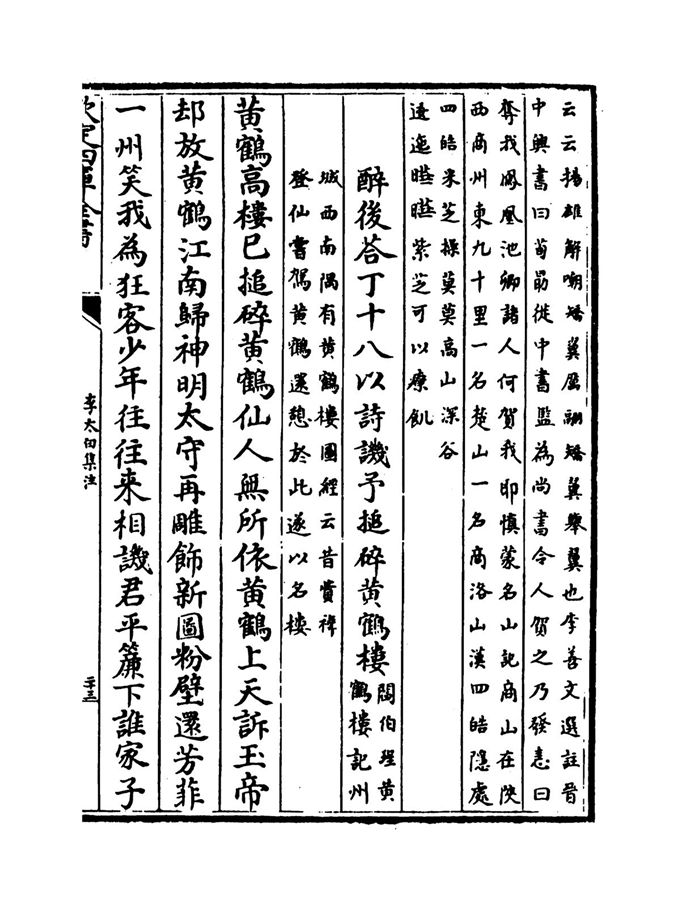 云云揚雄解嘲矯翼厲翮矯翼舉翼也李善文選註晉
中興書曰荀勗從中書監為尚書令人賀之乃發恚曰
奪我鳳凰池卿諸人何賀我耶慎蒙名山記商山在陜
西商州東九十里一名楚山一名商洛山漢四皓隱處
四皓采芝操莫莫高山深谷
逶迤曄曄紫芝可以療飢
醉後荅丁十八以詩譏予搥碎黄鶴樓
閻伯瑾黄
鶴樓記州
城西南隅有黄鶴樓圖經云昔費禕
登仙嘗駕黄鶴還憩於此遂以名樓
黄鶴高樓已搥碎黄鶴仙人無所依黄鶴上天訴玉帝
却放黄鶴江南歸神明太守再雕飾新圖粉壁還芳菲
一州笑我為狂客少年往往来相譏君平簾下誰家子
欽定四庫全書
李太白集注
二十三